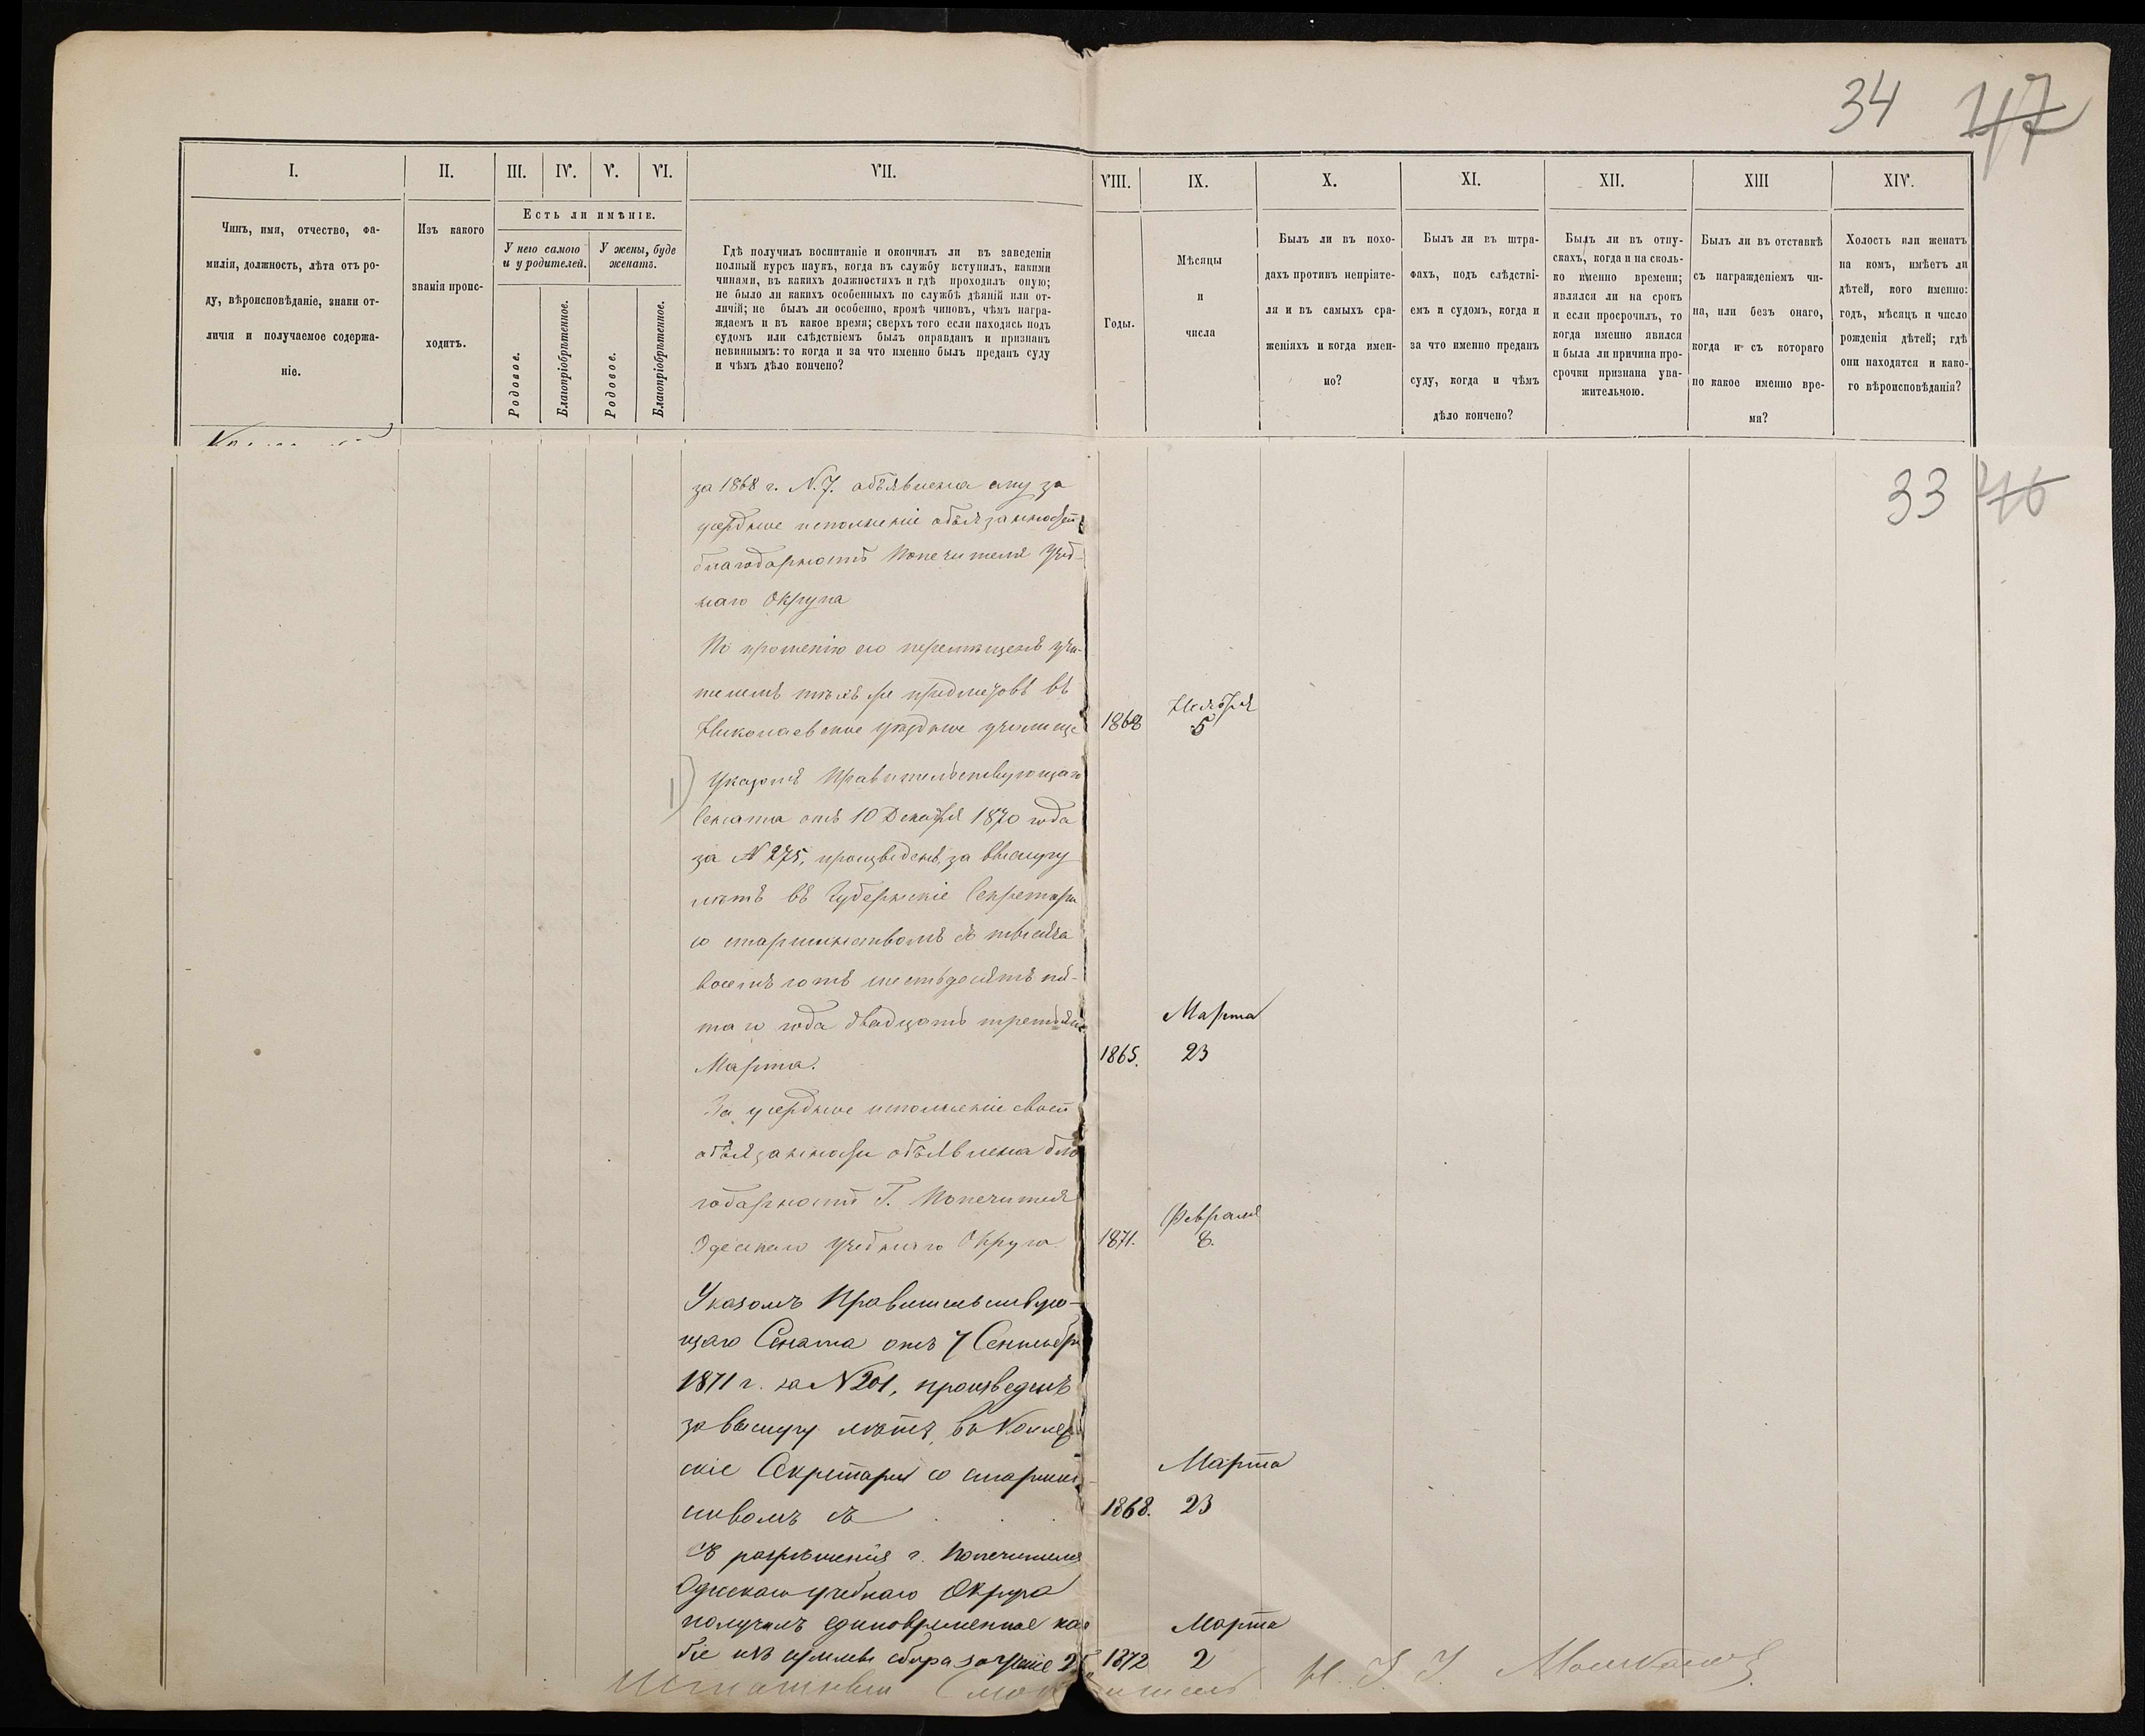 34 47
I. II. III. IV. V. VI. VII. VIII. IX. X. XI. XII. XIII XIV.
Чинъ, имя, отчество, фа-
милія, должность, лѣта отъ ро-
ду, вѣроисповѣданіе, знаки от-
личія и получаемое содержа-
ніе.
Изъ какого
званія проис-
ходитъ.
Есть ли имѣніе.
У него самого
и у родителей.
У жены, буде
женатъ.
Родовое.
Благопріобрѣтенное.
Родовое.
Благопріобрѣтенное.
Гдѣ получилъ воспитаніе и окончилъ ли въ заведеніи
полный курсъ наукъ, когда въ службу вступилъ, какими
чинами, въ какихъ должностяхъ и гдѣ проходилъ оную;
не было ли какихъ особенныхъ по службѣ дѣяній или от-
личій; не былъ ли особенно, кромѣ чиновъ, чѣмъ награ-
ждаемъ и въ какое время; сверхъ того если находясь подъ
судомъ или слѣдствіемъ былъ оправданъ и признанъ
невиннымъ: то когда и за что именно былъ преданъ суду
и чѣмъ дѣло кончено?
Годы.
Мѣсяцы
и
числа
Былъ ли въ похо-
дахъ противъ непріяте-
ля и въ самыхъ сра-
женіяхъ и когда имен-
но?
Былъ ли въ штра-
фахъ, подъ слѣдстві-
емъ и судомъ, когда и
за что именно преданъ
суду, когда и чѣмъ
дѣло кончено?
Былъ ли въ отпу-
скахъ, когда и на сколь-
ко именно времени;
являлся ли на срокъ
и если просрочилъ, то
когда именно явился
и была ли причина про-
срочки признана ува-
жительною.
Былъ ли въ отставкѣ
съ награжденіемъ чи-
на, или безъ онаго,
когда и съ котораго
по какое именно вре-
мя?
Холостъ или женатъ
на комъ, имѣетъ ли
дѣтей, кого именно:
годъ, мѣсяцъ и число
рожденія дѣтей; гдѣ
они находятся и како-
го вѣроисповѣданія?
33 46
за 1868 г. N. 7. объявлена ему за
усердное исполненіе обязанностей
благодарность Попечителя Учеб-
наго Округа
По прошенію его перемѣщенъ учи-
телемъ тѣхъ же предметовъ въ
Николаевское уѣздное училище
1868 Ноября
5
Указомъ Правительствующаго
Сената отъ 10 Декабря 1870 года
за N 275, произведенъ, за выслугу
лѣтъ въ Губернскіе Секретари
со старшинствомъ съ тысяча
восемьсотъ шестьдесятъ пя-
таго года двадцать третьяго
Марта.
1865. Марта
23
За усердное исполненіе своей
обязанности объявлена бла
годарность Г. Попечителя
Одесскаго Учебнаго Округа
1871. Февраля
8.
Указомъ Правительствую-
щаго Сената отъ 7 Сентября
1871 г. за N 201, произведенъ
за выслугу лѣтъ, въ Коллеж
скіе Секретари со старшин-
ствомъ съ
1868. Марта
23
Съ разрѣшенія г. Попечителя
Одесскаго учебнаго Округа
получилъ единовременное посо
біе изъ суммы сбора за ученіе 25
1872 Марта
2